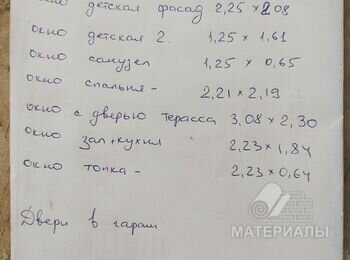 окно детская фасад 2,25 × 2,08
окно детская 2. 1,25 × 1,61
окно санузел 1,25 × 0,65
окно спальня - 2,21 × 2,19
окно с дверью терасса 3,08 × 2,30
окно зал+кухня 2,23 × 1,84
окно топка - 2,23 × 0,64
Двери в гараж
МАТЕРИАЛЫ